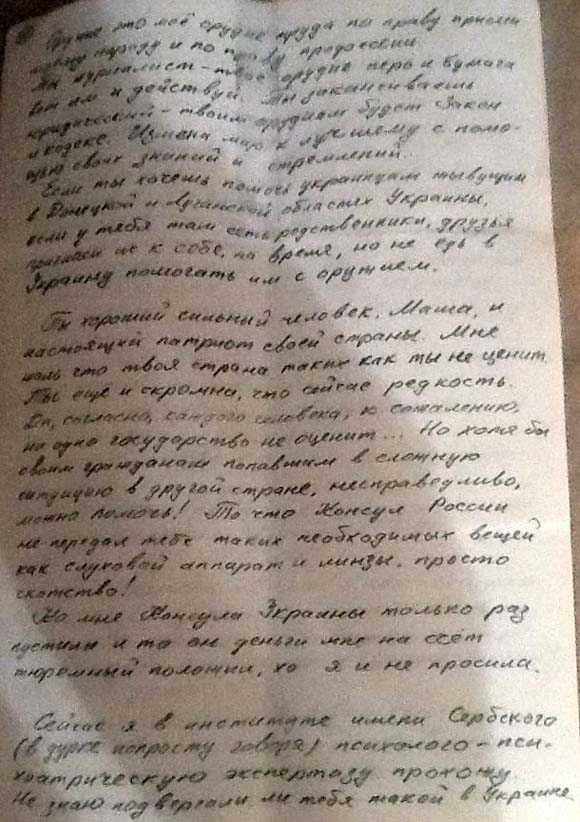 Оружие это моё орудие труда по праву присяги
моему народу и по праву профессии.
Ты журналист – твоё орудие перо и бумага
Вот им и действуй. Ты заканчиваешь
юридический – твоим орудием будет Закон
и кодекс. Измени мир к лучшему с помо-
щью своих знаний и стремлений.
Если ты хочешь помочь украинцам живущим
в Донецкой и Луганской областях Украины,
если у тебя там есть родственники, друзья
пригласи их к себе, на время, но не едь в
Украину помогать им с оружием.
Ты хороший сильный человек, Маша, и
настоящий патриот своей страны. Мне
жаль что твоя страна таких как ты не ценит.
Ты ещё и скромна, что сейчас редкость.
Да, согласна, каждого человека, к сожалению,
ни одно государство не оценит... Но хотя бы
своим гражданам попавшим в сложную
ситуацию в другой стране, несправедливо,
можно помочь! То что Консул России
не передал тебе таких необходимых вещей
как слуховой аппарат и линзы, просто
скотство!
Ко мне Консула Украины только раз
пустили и то он деньги мне на счёт
тюремный положил, хо я и не просила.
Сейчас я в институте имени Сербского
(в дурке попросту говоря) психолого-пси-
хиатрическую экспертизу прохожу.
Не знаю подвергали ли тебя такой в Украине